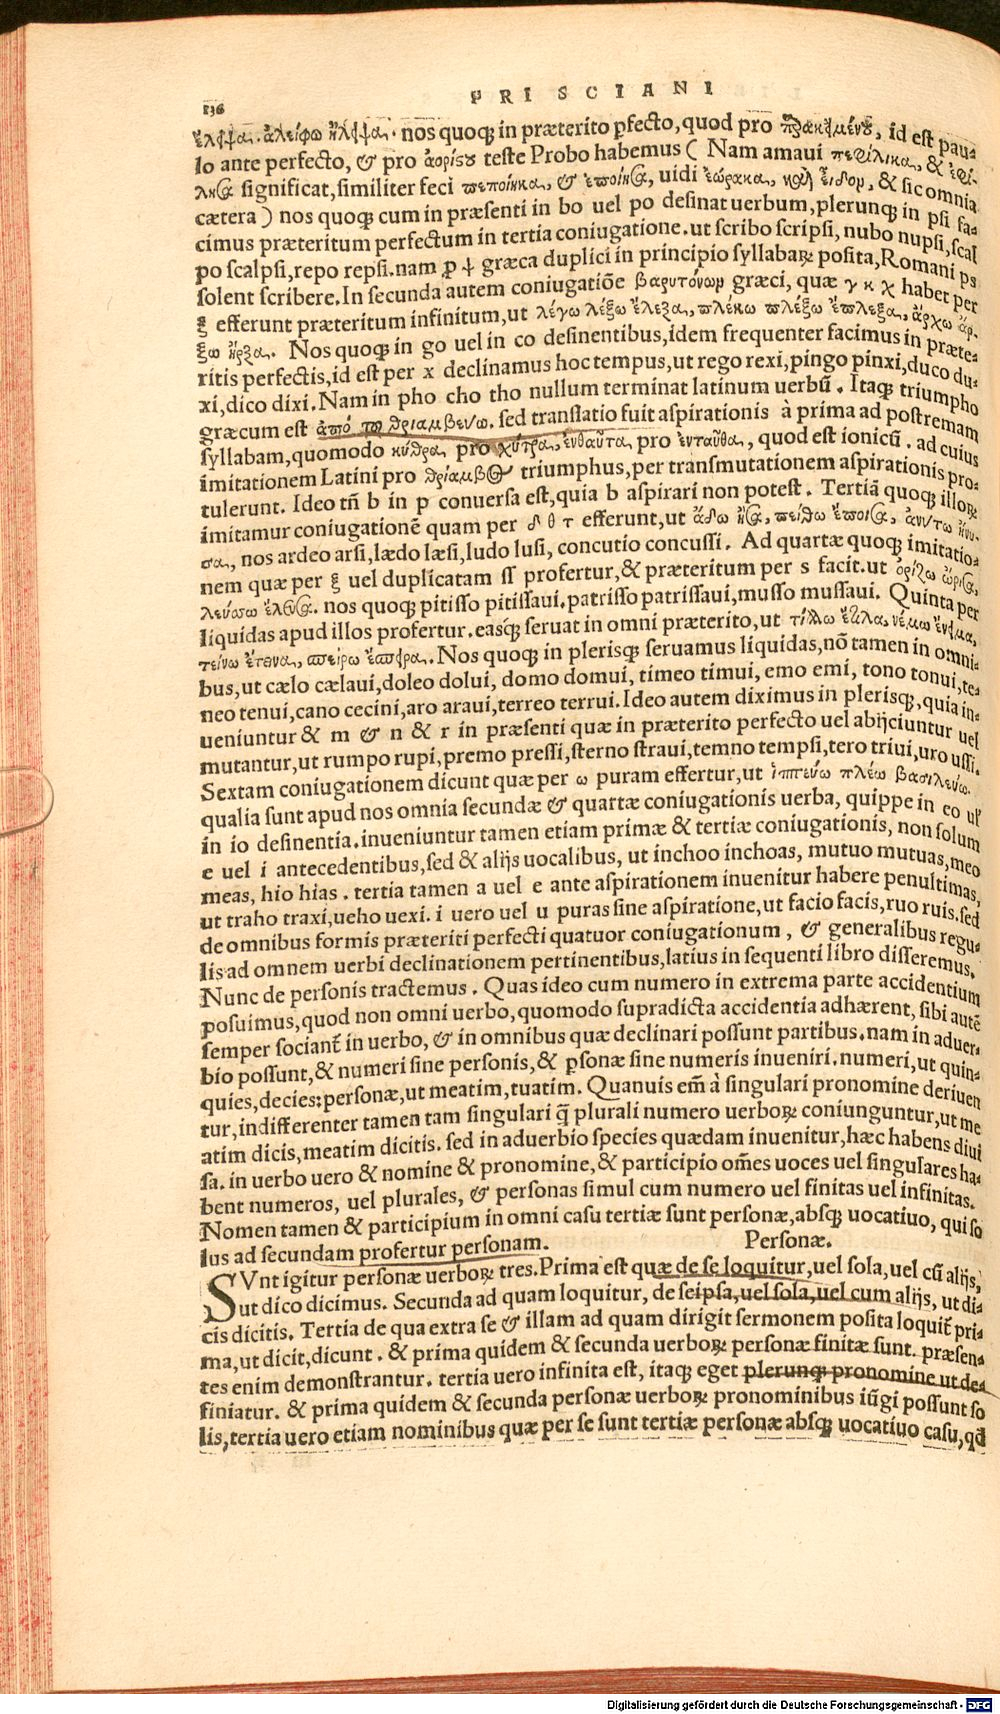 136
PRISCIANI
ἔλειψα. ἀλείφω ἤλειψα. nos quoq; in præterito ꝑfecto, quod pro παρακειμένου, id est pau-
lo ante perfecto, & pro ἀορίστου teste Probo habemus ( Nam amaui πεφίληκα, & ἐφί-
λησα significat, similiter feci πεποίηκα, & ἐποίησα, uidi ἑώρακα, καὶ εἶδον, & sic omnia
cætera ) nos quoq; cum in præsenti in bo uel po desinat uerbum, plerunq; in psi fa-
cimus præteritum perfectum in tertia coniugatione. ut scribo scripsi, nubo nupsi, scal
po scalpsi, repo repsi. nam ꝓ ψ græca duplici in principio syllabaꝝ posita, Romani ps
solent scribere. In secunda autem coniugatiõe βαρυτόνων græci, quæ γ κ χ habet per
ξ efferunt præteritum infinitum, ut λέγω λέξω ἔλεξα, πλέκω πλέξω ἔπλεξα, ἄρχω ἄρ-
ξω ἦρξα. Nos quoq; in go uel in co desinentibus, idem frequenter facimus in præte-
ritis perfectis, id est per x declinamus hoc tempus, ut rego rexi, pingo pinxi, duco du-
xi, dico dixi. Nam in pho cho tho nullum terminat latinum uerbũ. Itaq; triumpho
græcum est ἀπὸ τοῦ θριαμβεύω. sed translatio fuit aspirationis à prima ad postremam
syllabam, quomodo κύθρα pro χύτρα, ἐνθαῦτα, pro ἐνταῦθα, quod est ionicũ. ad cuius
imitationem Latini pro θρίαμβος triumphus, per transmutationem aspirationis pro-
tulerunt. Ideo tñ b in p conuersa est, quia b aspirari non potest. Tertiã quoq; illoꝝ
imitamur coniugationẽ quam per δ θ τ efferunt, ut ἄδω ᾖσα, πείθω ἔποισα, ἀνύτω ἤνυ-
σα, nos ardeo arsi, lædo læsi, ludo lusi, concutio concussi. Ad quartæ quoq; imitatio-
nem quæ per ξ uel duplicatam ss profertur, & præteritum per s facit. ut ὁρίζω ὥρισα,
λεύσσω ἔλευσα. nos quoq; pitisso pitissaui. patrisso patrissaui, musso mussaui. Quinta per
liquidas apud illos profertur. easq́; seruat in omni præterito, ut τίλλω ἔτιλα, νέμω ἔνειμα,
τείνω ἔτεινα, σπείρω ἔσπειρα. Nos quoq; in plerisq; seruamus liquidas, nõ tamen in omni-
bus, ut cælo cælaui, doleo dolui, domo domui, timeo timui, emo emi, tono tonui, te-
neo tenui, cano cecini, aro araui, terreo terrui. Ideo autem diximus in plerisq;, quia in-
ueniuntur & m & n & r in præsenti quæ in præterito perfecto uel abijciuntur uel
mutantur, ut rumpo rupi, premo pressi, sterno straui, temno tempsi, tero triui, uro ussi.
Sextam coniugationem dicunt quæ per ω puram effertur, ut ἱππεύω πλέω βασιλεύω.
qualia sunt apud nos omnia secundæ & quartæ coniugationis uerba, quippe in eo uľ
in io desinentia. inueniuntur tamen etiam primæ & tertiæ coniugationis, non solum
e uel i antecedentibus, sed & alijs uocalibus, ut inchoo inchoas, mutuo mutuas, meo
meas, hio hias. tertia tamen a uel e ante aspirationem inuenitur habere penultimas,
ut traho traxi, ueho uexi. i uero uel u puras sine aspiratione, ut facio facis, ruo ruis. sed
de omnibus formis præteriti perfecti quatuor coniugationum, & generalibus regu-
lis ad omnem uerbi declinationem pertinentibus, latius in sequenti libro differemus.
Nunc de personis tractemus. Quas ideo cum numero in extrema parte accidentium
posuimus, quod non omni uerbo, quomodo supradicta accidentia adhærent, sibi autẽ
semper sociant̃ in uerbo, & in omnibus quæ declinari possunt partibus. nam in aduer-
bio possunt, & numeri sine personis, & ꝑsonæ sine numeris inueniri. numeri, ut quin-
quies, decies: personæ, ut meatim, tuatim. Quanuis em̃ à singulari pronomine deriuen
tur, indifferenter tamen tam singulari q̃ plurali numero uerboꝝ coniunguntur, ut me
atim dicis, meatim dicitis. sed in aduerbio species quædam inuenitur, hæc habens diui
sa. in uerbo uero & nomine & pronomine, & participio oẽs uoces uel singulares ha-
bent numeros, uel plurales, & personas simul cum numero uel finitas uel infinitas.
Nomen tamen & participium in omni casu tertiæ sunt personæ, absq; uocatiuo, qui so
lus ad secundam profertur personam. Personæ.
SVnt igitur personæ uerboꝝ tres. Prima est quæ de se loquitur, uel sola, uel cũ alijs,
ut dico dicimus. Secunda ad quam loquitur, de seipsa, uel sola, uel cum alijs, ut di-
cis dicitis. Tertia de qua extra se & illam ad quam dirigit sermonem posita loquit̃ pri-
ma, ut dicit, dicunt. & prima quidem & secunda uerboꝝ personæ finitæ sunt. præsen-
tes enim demonstrantur. tertia uero infinita est, itaq; eget plerunq; pronomine ut de-
finiatur. & prima quidem & secunda personæ uerboꝝ pronominibus iũgi possunt so
lis, tertia uero etiam nominibus quæ per se sunt tertiæ personæ absq; uocatiuo casu, qđ
Digitalisierung gefördert durch die Deutsche Forschungsgemeinschaft - DFG